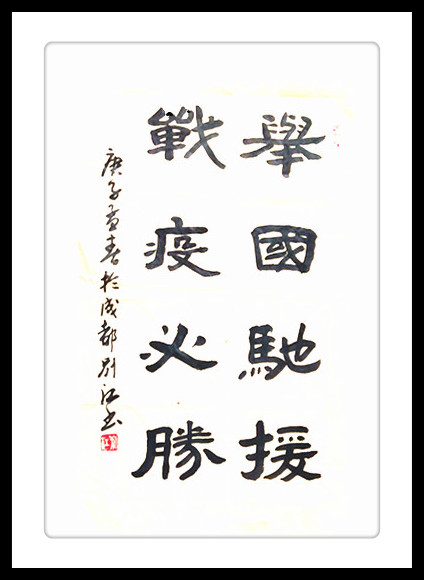 舉國馳援
戰疫必勝
庚子孟春於成都別江書